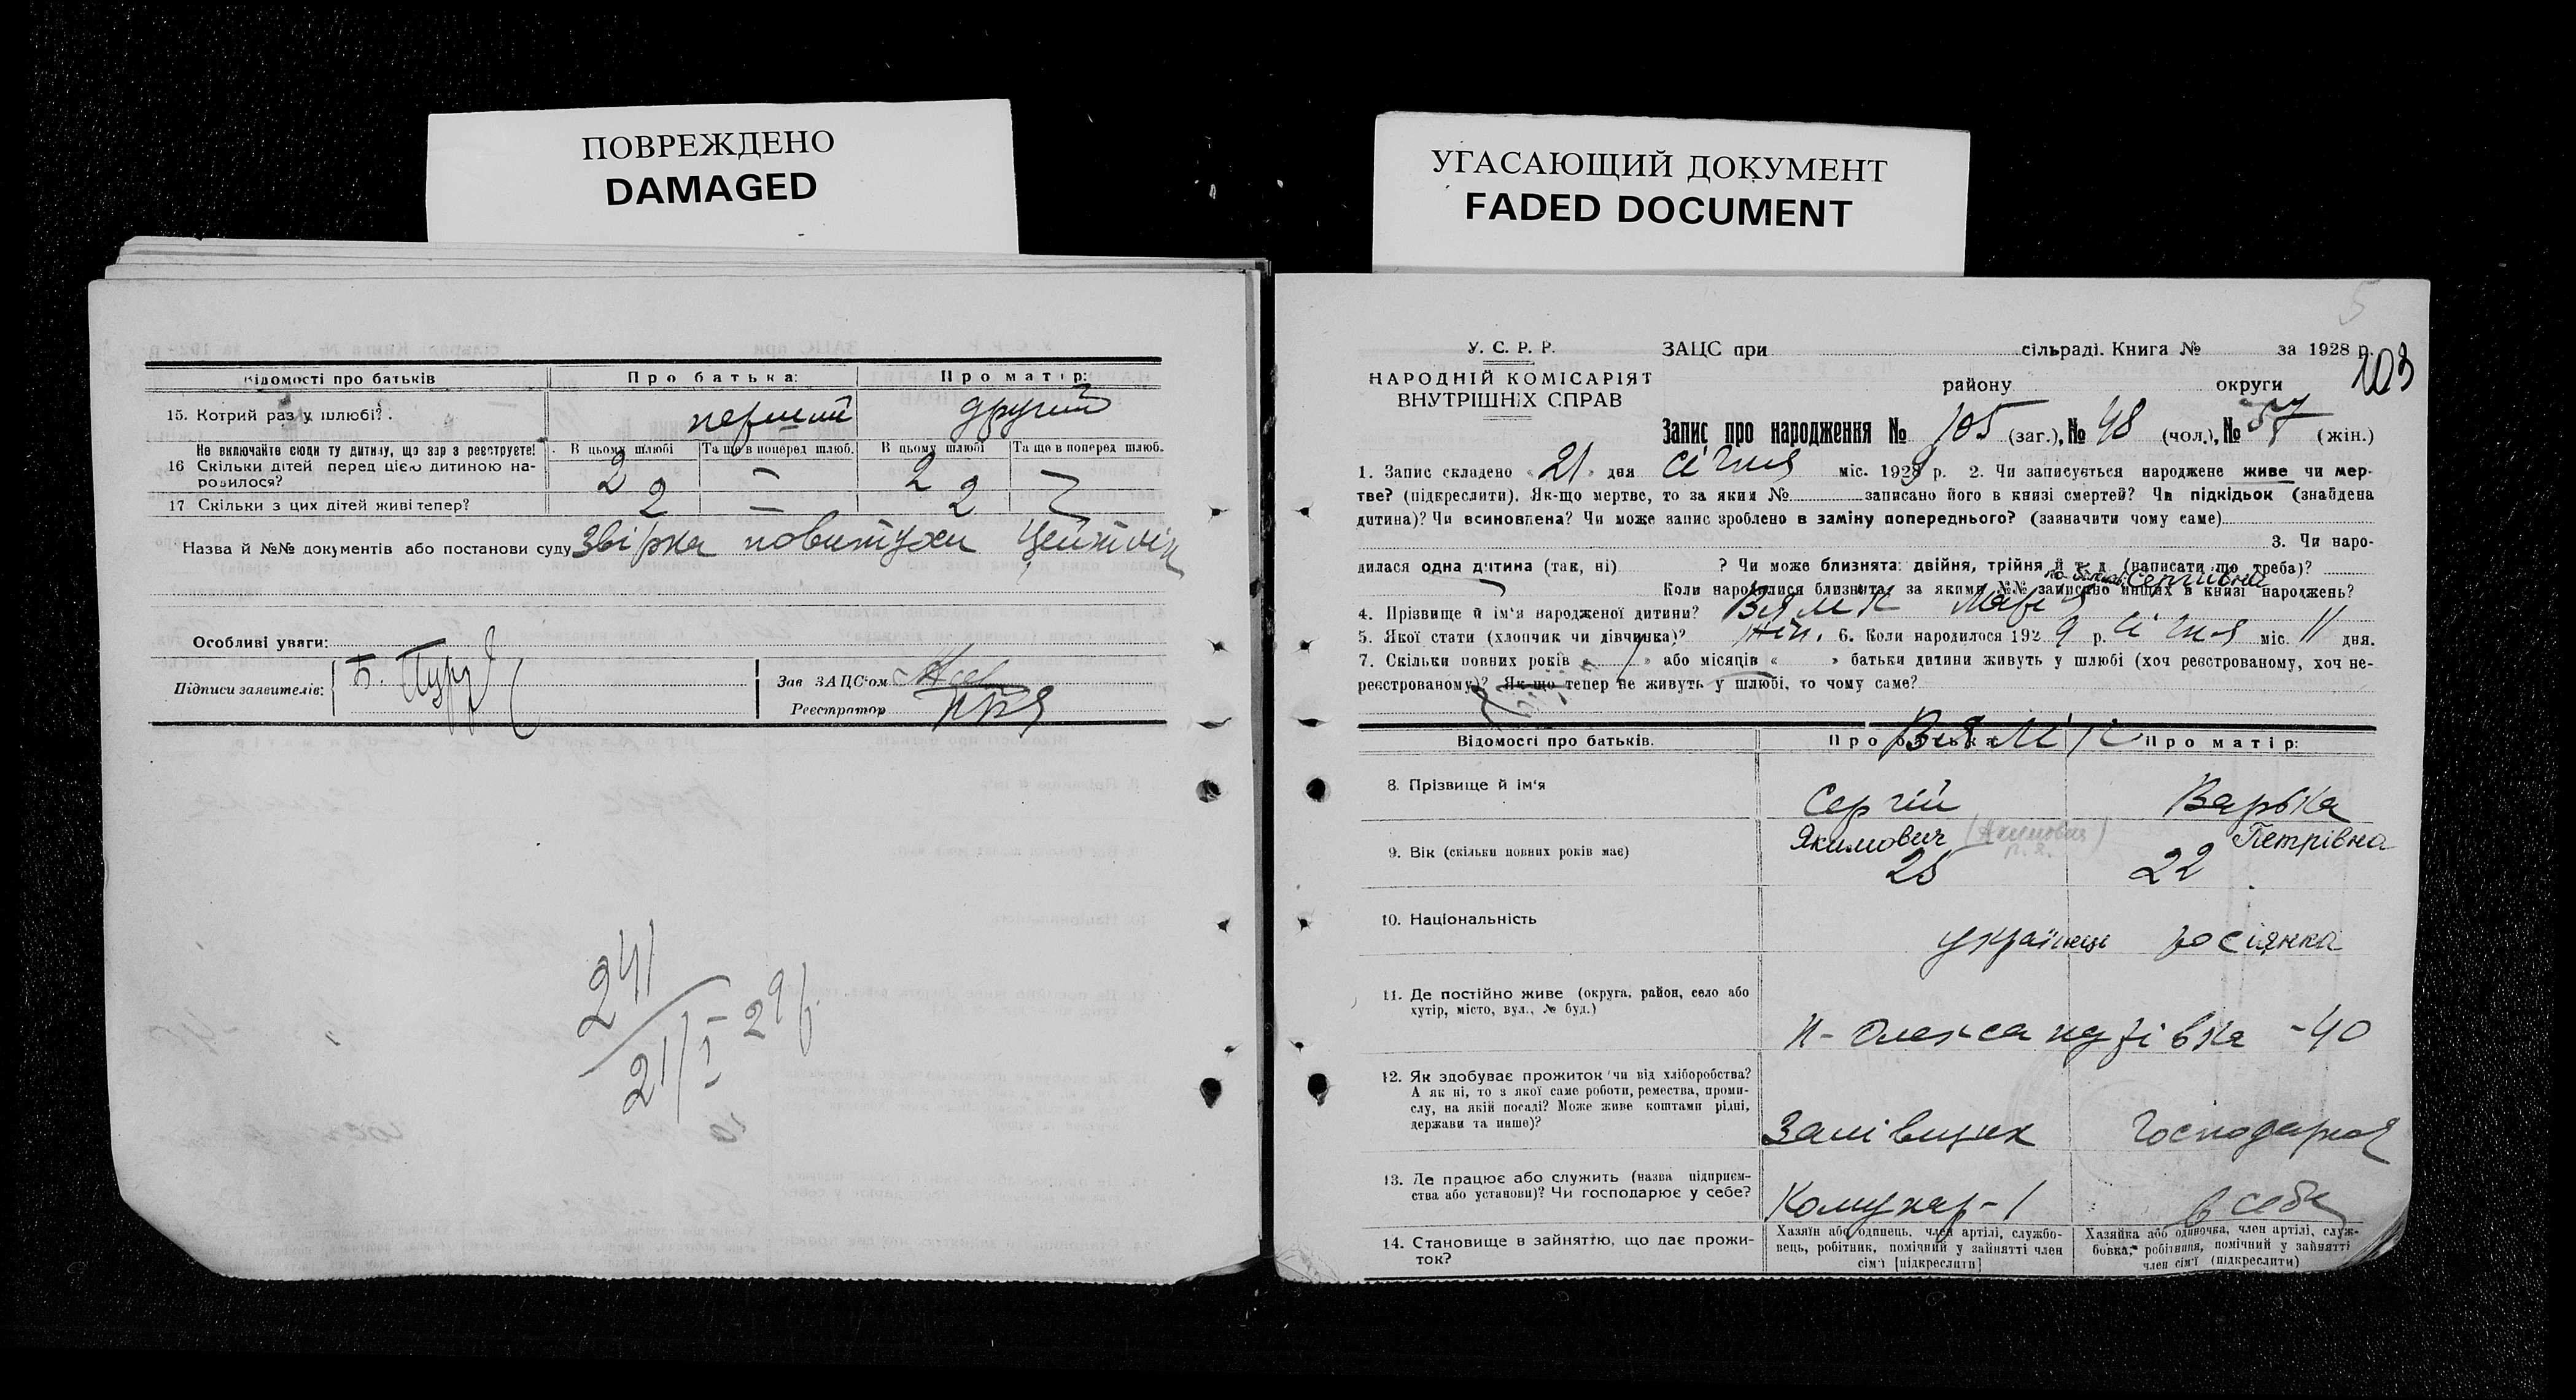 ПОВРЕЖДЕНО
DAMAGED
УГАСАЮЩИЙ ДОКУМЕНТ
FADED DOCUMENT
Відомості про батьків
Про батька:
Про матір:
15. Котрий раз у шлюбі?
перший
другий
Не включайте сюди ту дитину, що зар з реєструєте!
В цьому шлюбі
Та ще в поперед шлюб.
В цьому шлюбі
Та ще в поперед шлюб.
16 Скільки дітей перед цією дитиною народилося?
2 — 2
17 Скільки з цих дітей живі тепер?
2 — 2
Назва й №№ документів або постанови суду Звірка повитухи
Особливі уваги:
Підписи заявителів:
Зав ЗАЦС'ом
Реєстратор
241
21/I-29р.
5
103
У. С. Р. Р.
НАРОДНІЙ КОМІСАРІЯТ
ВНУТРІШНІХ СПРАВ
ЗАЦС при сільраді. Книга № за 1928 р.
району округи
Запис про народження № 105 (заг.), № 48 (чол.), № 57 (жін.)
1. Запис складено «21» дня січня міс. 1929 р. 2. Чи записується народжене живе чи мер-
тве? (підкреслити). Як-що мертве, то за яким № записано його в книзі смертей? Чи підкідьок (знайдена
дитина)? Чи всиновлена? Чи може запис зроблено в заміну попереднього? (зазначити чому саме)
3. Чи наро-
дилася одна дитина (так, ні) ? Чи може близнята: двійня, трійня й т. д. (написати що треба)?
Коли народилися близнята, за якими №№ записано инших в книзі народжень?
Сергіївна
4. Прізвище й ім'я народженої дитини?
5. Якої стати (хлопчик чи дівчинка)? жін. 6. Коли народилося 1929 р. січня міс. 11 дня.
7. Скільки повних років « » або місяців « » батьки дитини живуть у шлюбі (хоч реєстрованому, хоч не-
реєстрованому)? Як-що тепер не живуть у шлюбі, то чому саме?
Відомості про батьків.
Про батька
Про матір:
8. Прізвище й ім'я
Сергій
Варька
Якимович
Петрівна
9. Вік (скільки повних років має)
25
22
10. Національність
українец
росіянка
11. Де постійно живе (округа, район, село або
хутір, місто, вул., № буд.)
Н-Олександрівка -40
12. Як здобуває прожиток чи від хліборобства?
А як ні, то з якої саме роботи, ремества, проми-
слу, на якій посаді? Може живе коштами рідні,
держави та инше)?
Залівщик
Господарка
13. Де працює або служить (назва підприєм-
ства або установи)? Чи господарює у себе?
Комунар-1
в себе
14. Становище в зайняттю, що дає прожи-
ток?
Хазяїн або одинець, член артілі, службо-
вець, робітник, помічний у зайнятті член
сім'ї [підкреслити]
Хазяйка або одиночка, член артілі, служ-
бовка, робітниця, помічний у зайнятті
член сім'ї (підкреслити)